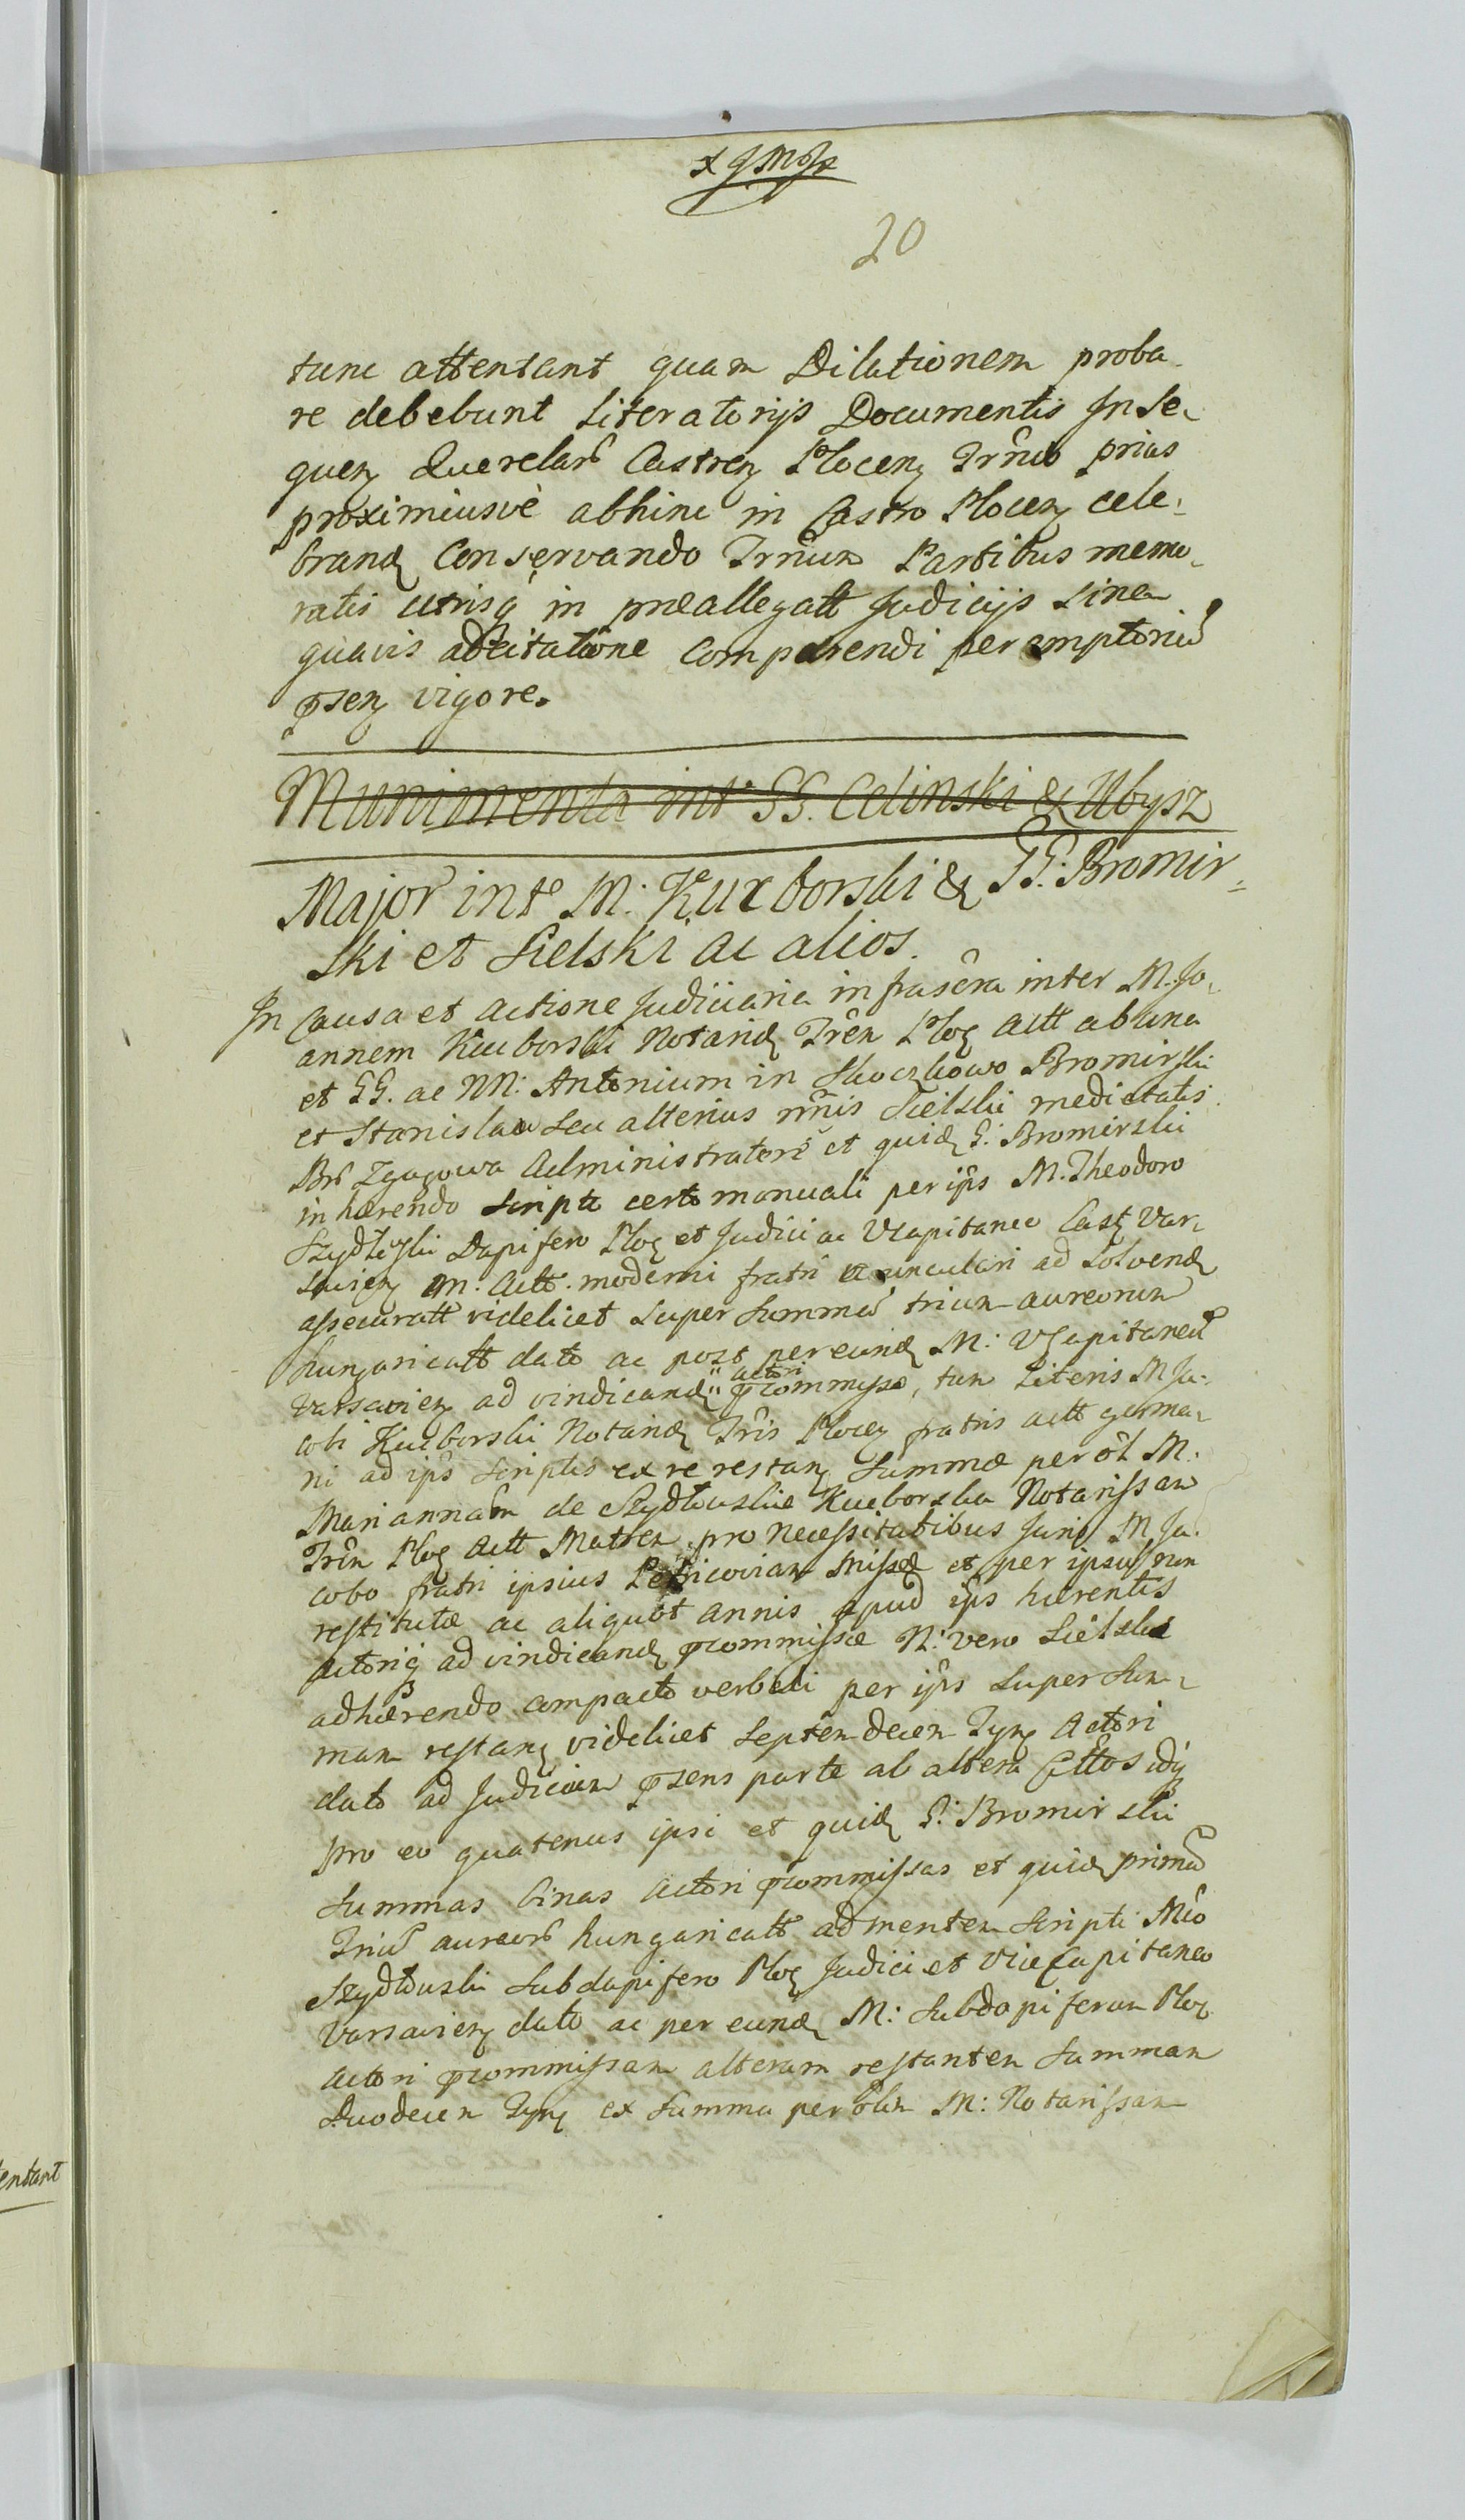 20
tunc attentant quam Dilationem proba-
re debebunt Literatorijs Documentis Inse-
quen Querelarũ Castren Plocen Trñio prius
proximiusvè abhinc in Castro Plocen cele-
brand Conservando Trñum Partibus memo-
ratis utrisq in præallegatt Judicijs sine
quavis adcitatione comparendi peremptoriũ
pñsen vigore.
Munimenta intr GG. Celinski & Ubysz
Major inte M: Kucborski & GG: Bromir-
ski et Sielski ac alios.
In Causa et actione Judiciaria infrascr̃a inter M. Jo-
annem Kucborski Notarid Trên Ploc actt ab una
et GG. ac NN: Antonium in Skoczkowo Bromirski
et Stanislau seu alterius nñis Sielski medietatis
Administratorê et quid G: Bromirski
inhærendo scripto certo manuali per ip̃s M. Theodoro
Szydłoski Dapifero Ploc et Judici ac VCapitaneo Cast Var-
savien m. actt. moderni fratri ad solvend
assecuratt videlicet super summã trium aureorum
hungaricatt dato ac post per eund M: VCapitaneũ
actori
Varsavien ad vindicand commissæ, tum Literis M Ja-
cobi Kucborski Notarid Tr̃is Plocen fratris actt germa-
ni ad ip̃s scriptis ex re restan summæ per ol M.
Mariannam de Szydłouskie Kucborska Notarissam
Trên Ploc actt Matrem pro necessitatibus Juris M Ja-
cobo fratri ipsius Petricoviam missæ et per ipsum non
restitutæ ac aliquot annis apud ip̃s hærentis
actoriq ad vindicand commissæ N: vero Sielski
adhærendo compacto verbali per ip̃s super sum-
mam restan videlicet Septemdecem Tyn Actori
dato ad Judicium pñsens parte ab altera Cittos idq
pro eo quatenus ipsi et quid G: Bromirski
summas binas actori commissas et quid primã
Triũ aureorũ hungaricatt ad mentem scripti Mco
Szydłouski Subdapifero Ploc Judici et ViceCapitaneo
Varsavien dato ac per eund M: Subdapiferum Ploc
actori commissam alteram restantem summam
Duodecem Tyn ex summa per olim M: Notarissam
entant